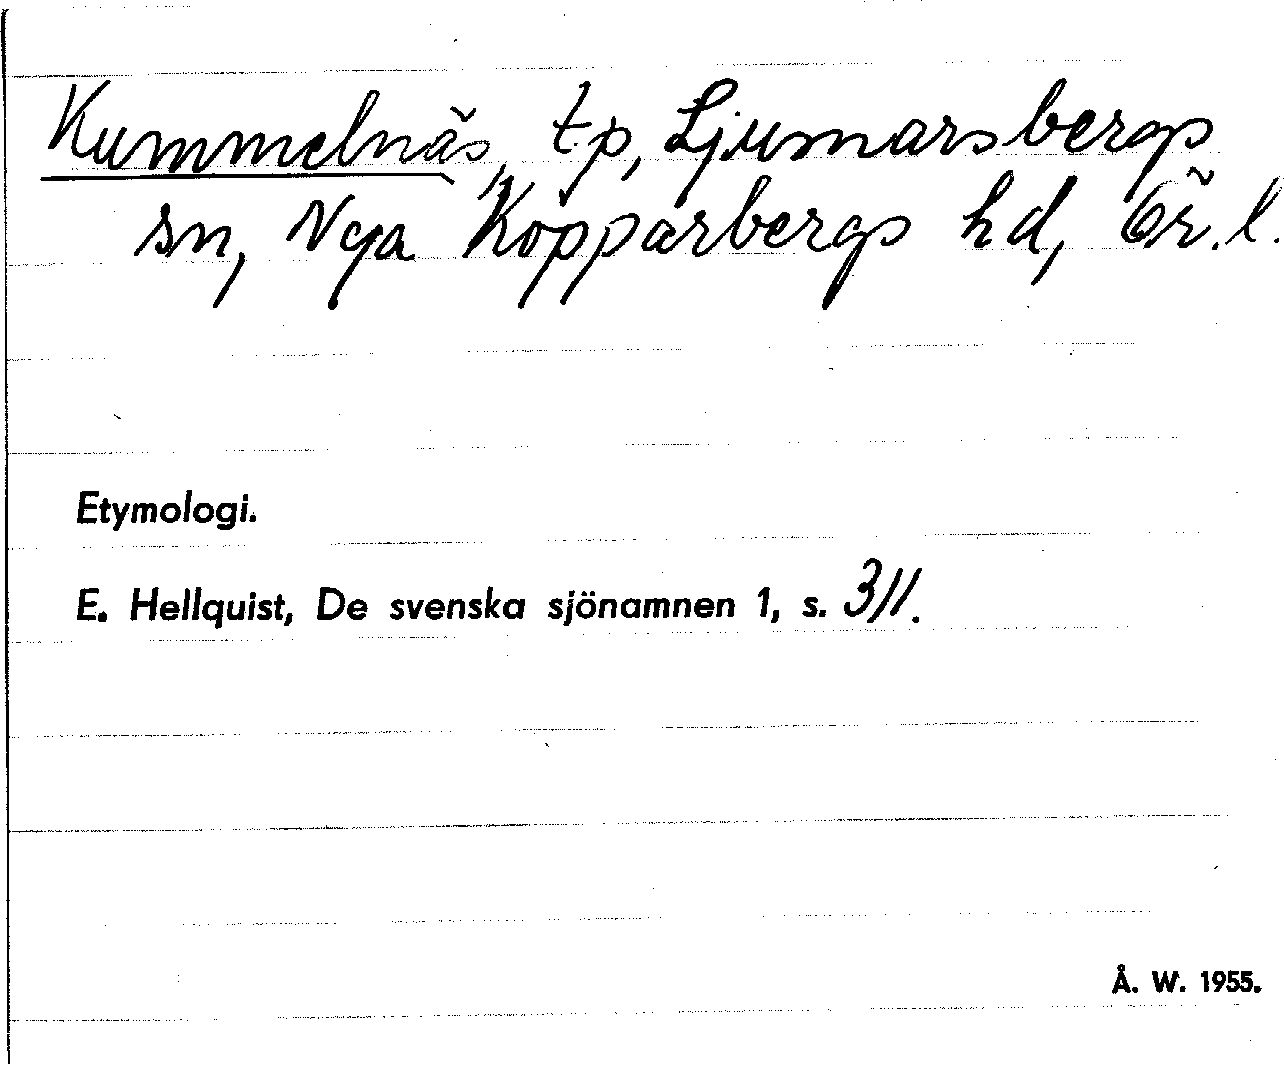 Kummelnäs, tp, Ljusnarsbergs
sn, Nya Kopparbergs hd, Ör.l.
Etymologi.
E. Hellquist, De svenska sjönamnen 1, s. 311.
Å. W. 1955.